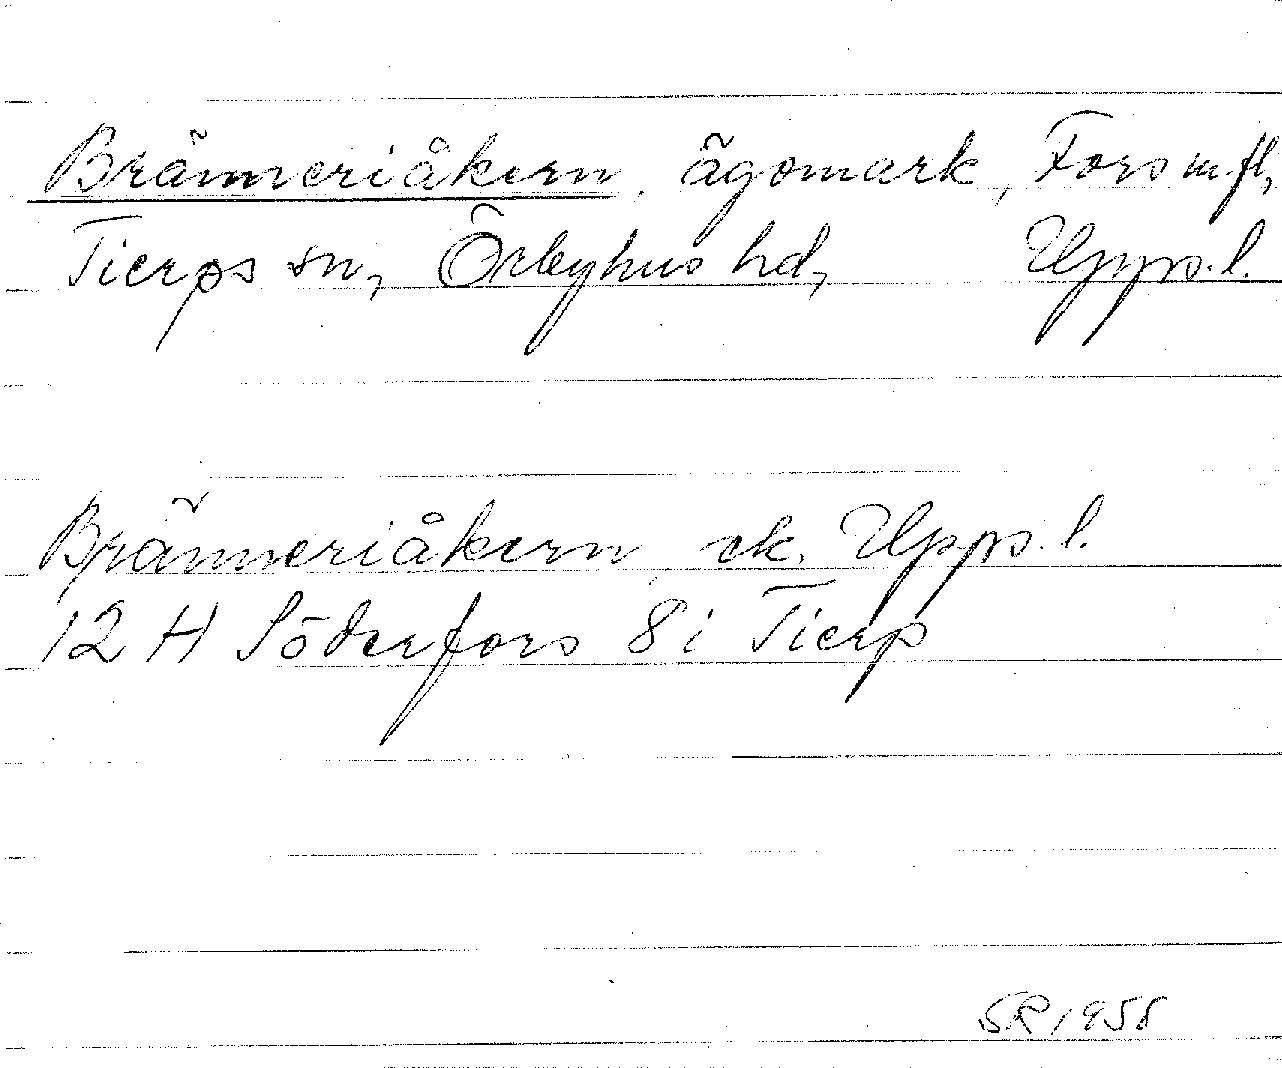 Bränneriåkern, ägomark, Fors m.fl,
Tierps sn, Örbyhus hd, Upps. l.
Bränneriåkern, ek. Upps. l.
12 H Söderfors 8 i Tierp
SR 1958